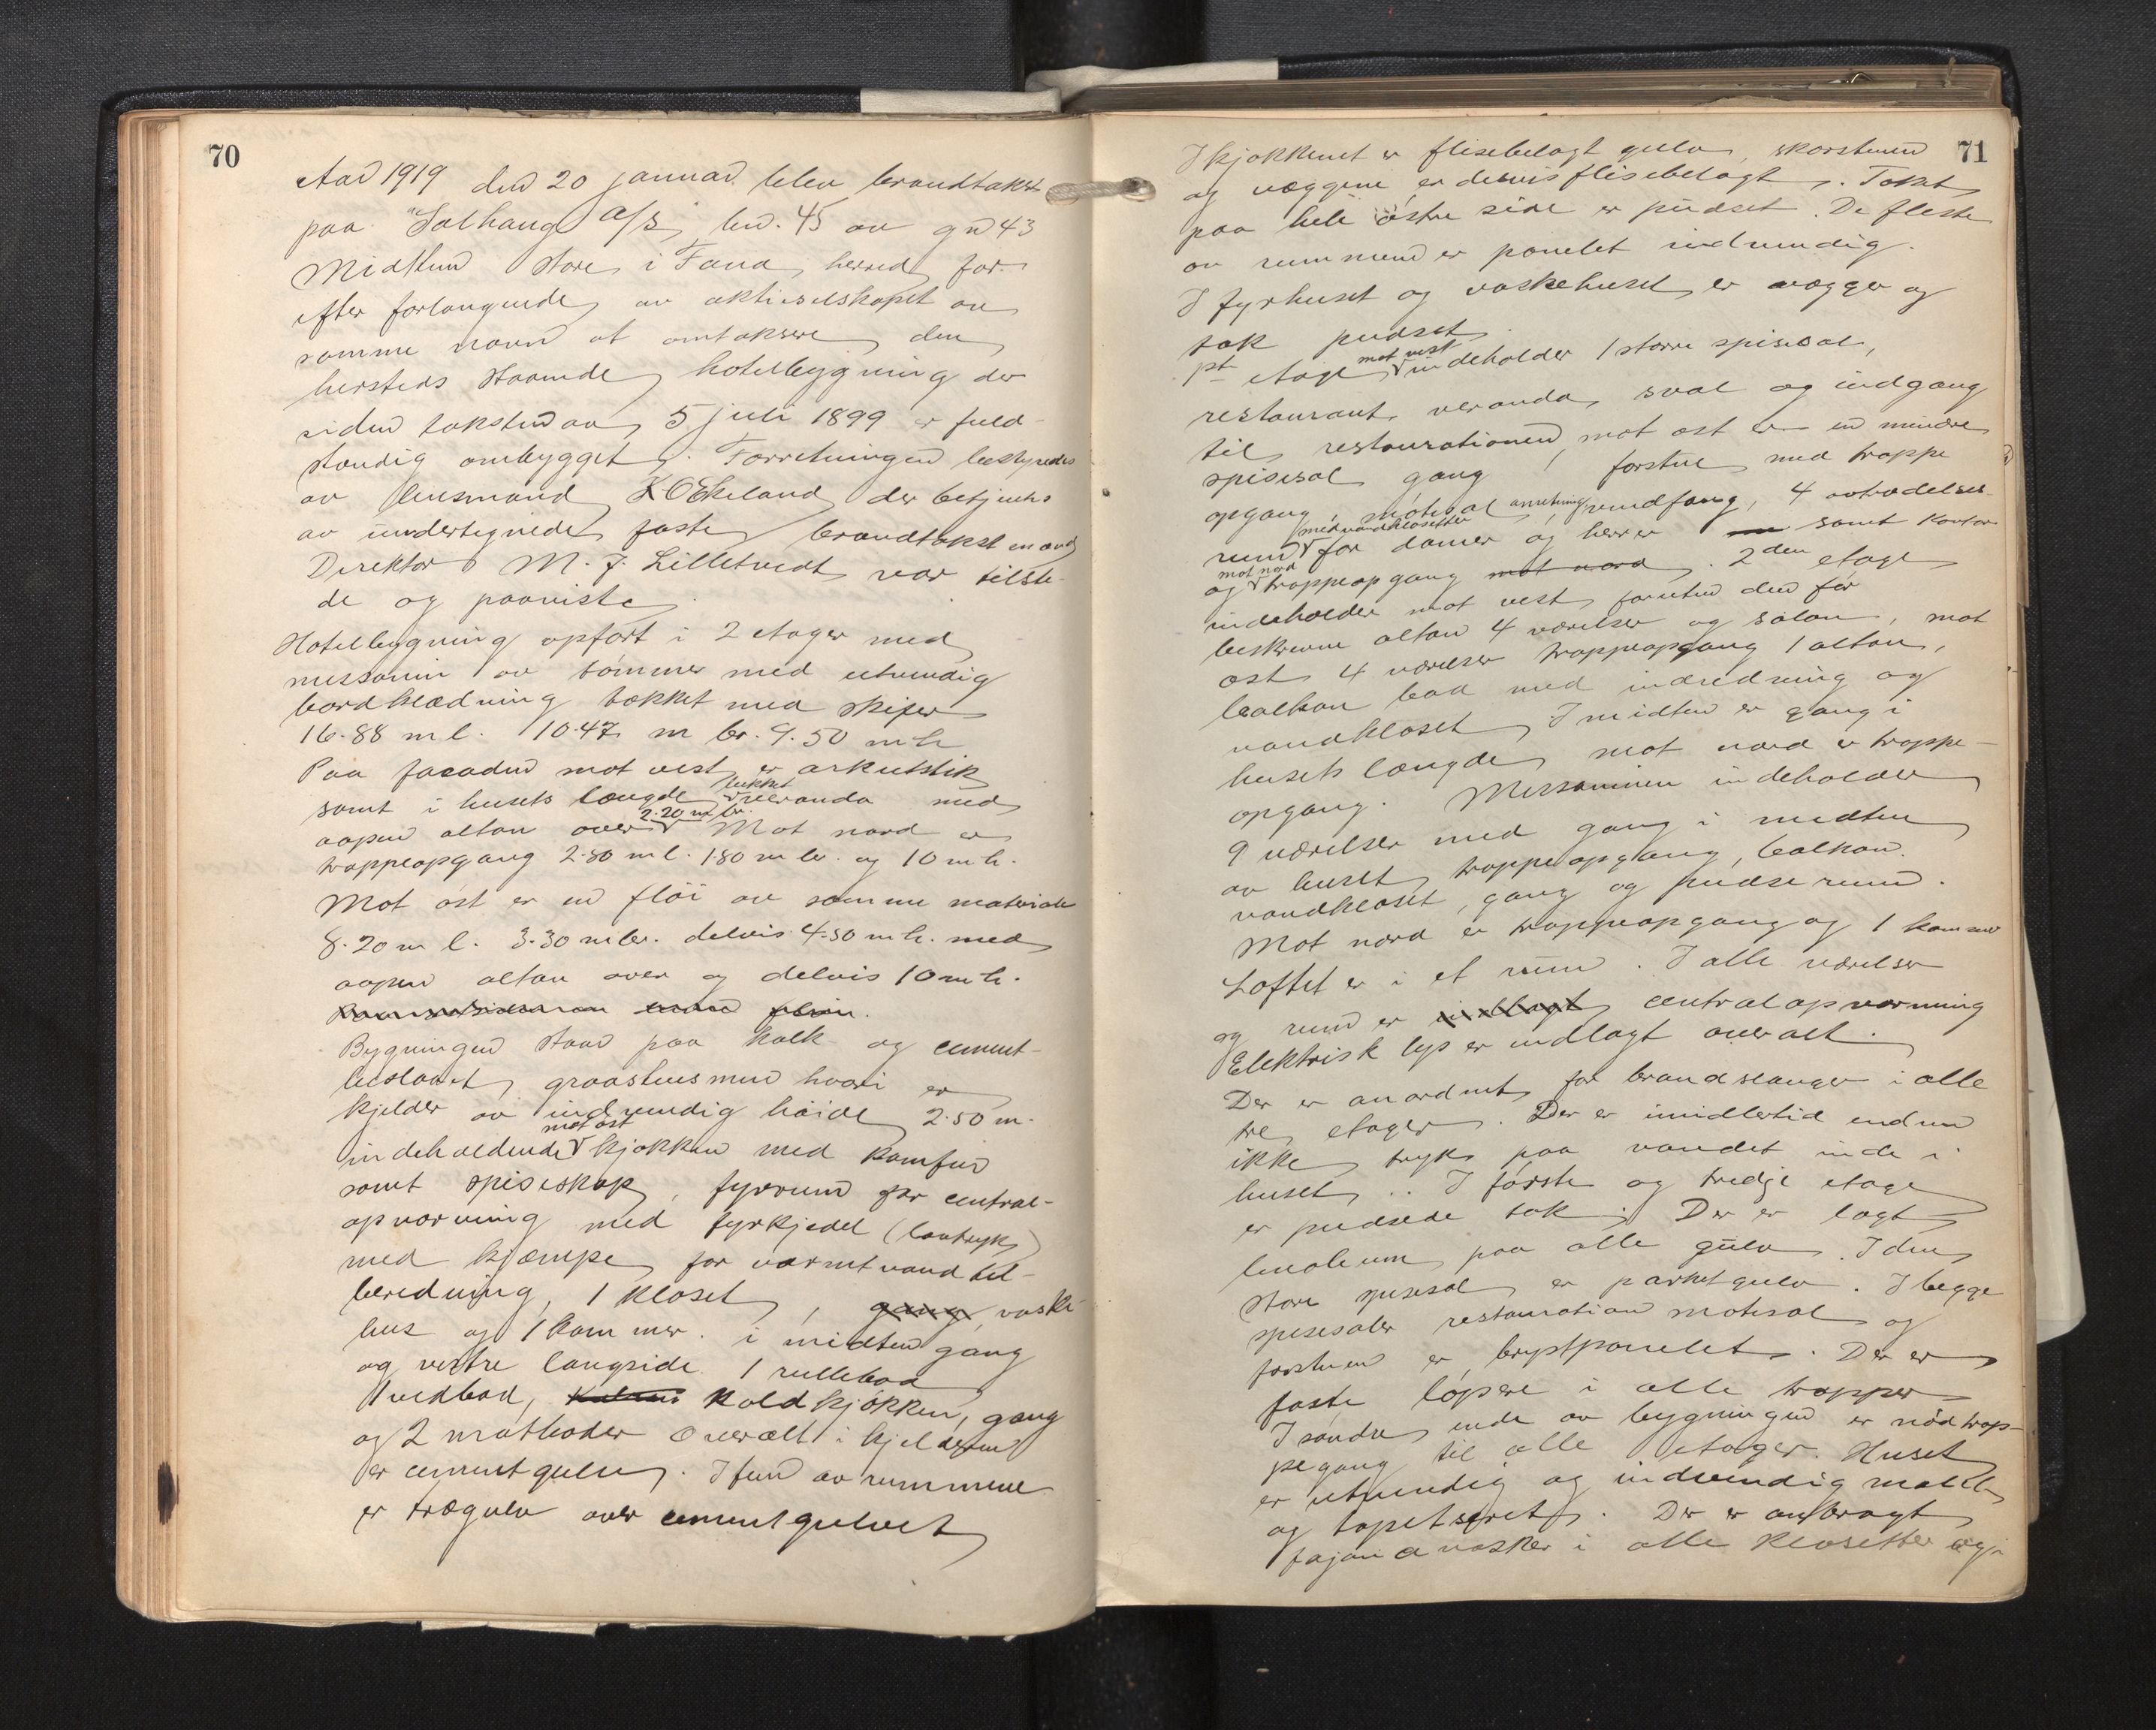 70
Aar 1919 den 20 januar blev brandtakst
paa "Solhaug" A/S, bn. 45 av gn 43
Midttun store i Fana herred for-
efter forlangende av aktieselskapet av
samme navn at omtaksere den
hersteds staaende hotelbygning der
siden taksten av 5 juli 1899 er fuld-
stændig ombygget. Forretningen bestyredes
av lensmand K O Ekeland der betjentes
av undertegnede faste brandtakstmænd
Direktør M. J. Lilletvedt var tilste-
de og paaviste
Hotelbygning opført i 2 etager med
messanin av tømmer med utvendig
bordklædning tækket med skifer
16.88 m l. 10.47 m br. 9.50 m h
Paa facaden mot vest er arkutstik
samt i husets længde lukket veranda med
aapen altan over 2.20 m br. Mot nord er
trappeopgang 2.80 m l. 1.80 m br. og 10 m h.
Mot øst er en fløi av samme materiale
8.20 m l. 3.30 m br. delvis 4.50 m h. med
aapen altan over og delvis 10 m h.
Bygningen staar paa kalk- og cement-
beslaaet graastensmur hvori er
kjelder av indvendig høide 2.50 m.
indeholdende mot øst kjøkken med komfur
samt spiseskap, fyrrum for central-
opvarming med fyrkjedel (lavtryks)
med kjæmpe for varmtvand til-
beredning, 1 kloset, gang, vaske-
hus og 1 kammer. i midten gang
og vestre langside 1 rullebod
1 vedbod, Koldkjøkken, gang
og 2 matboder Overalt i kjelderen
er cementgulv. I fem av rummene
er trægulv over cementgulvet
71
I kjøkkenet er flisebelagt gulv, skorstenen
og væggene er delvis flisebelagt. Taket
paa hele østre side er pudset. De fleste
av rummene er panelet indvendig.
I fyrhuset og vaskehuset er vægger og
tak pudset.
1ste etage mot vest indeholder 1 større spisesal,
restaurant, veranda, sval og indgang
til restaurationen, mot øst er en mindre
spisesal gang, forstue med trappe
opgang, møtesal anretning vindfang, 4 avtrædelses-
rum med vandklosetter for damer og herrer samt kontor
og mot nord trappeopgang mot nord. 2den etage
indeholder mot vest foruten den før
beskrevne altan 4 værelser og salon, mot
øst 4 værelser trappeopgang 1 altan,
balkon bad med indredning og
vandkloset, I midten er gang i
husets længde, mot nord er trappe-
opgang. Messaninen indeholder
9 værelser med gang i midten
av huset, trappeopgang, balkon.
vandkloset, gang og pudserum.
Mot nord er trappeopgang og 1 kammer
Loftet er i et rum. I alle værelser
og rum er indlagt centralopvarming
Elektrisk lys er indlagt overalt.
Der er anordnet for brandslanger i alle
tre etager. Der er imidlertid endnu
ikke tryk paa vandet inde i
huset. I første og tredje etage
er pudsede tak. Der er lagt
linoleum paa alle gulv. I den
store spisesal er parketgulv. I begge
spisesaler restauration møtesal og
forstuen er brystpanelet. Der er
faste løpere i alle trapper
I søndre ende av bygningen er nødtrap-
pegang til alle etager. Huset
er utvendig og indvendig malet
og tapetseret. Der er anbragt
fajancevasker i alle klosetter og i